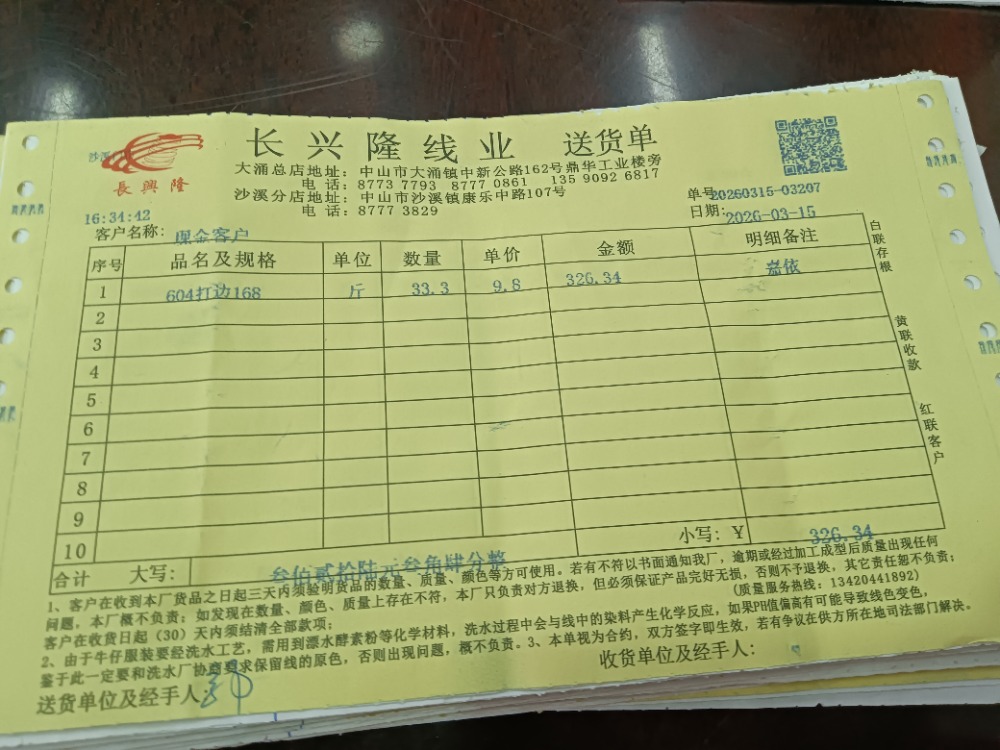 沙溪
長興隆
长兴隆线业 送货单
大涌总店地址：中山市大涌镇中新公路162号鼎华工业楼旁
电 话：8773 7793 8777 0861 135 9092 6817
沙溪分店地址：中山市沙溪镇康乐中路107号
电 话：8777 3829
单号20260315-03207
日期：2026-03-15
16:34:42
客户名称：现金客户
序号 品名及规格 单位 数量 单价 金额 明细备注
1 604打边168 斤 33.3 9.8 326.34 嘉依
2
3
4
5
6
7
8
9
10 小写：￥ 326.34
合计 大写： 叁佰贰拾陆元叁角肆分整
白联存根
黄联收款
红联客户
1、客户在收到本厂货品之日起三天内须验明货品的数量、质量、颜色等方可使用。若有不符以书面通知我厂，逾期或经过加工成型后质量出现任何
问题，本厂概不负责；如发现在数量、颜色、质量上存在不符，本厂只负责对方退换，但必须保证产品完好无损，否则不予退换，其它责任恕不负责；
客户在收货日起（30）天内须结清全部款项； (质量服务热线：13420441892)
2、由于牛仔服装要经洗水工艺，需用到漂水酵素粉等化学材料，洗水过程中会与线中的染料产生化学反应，如果PH值偏高有可能导致线色变色，
鉴于此一定要和洗水厂协商要求保留线的原色，否则出现问题，概不负责。3、本单视为合约，双方签字即生效，若有争议在供方所在地司法部门解决。
送货单位及经手人： 收货单位及经手人：